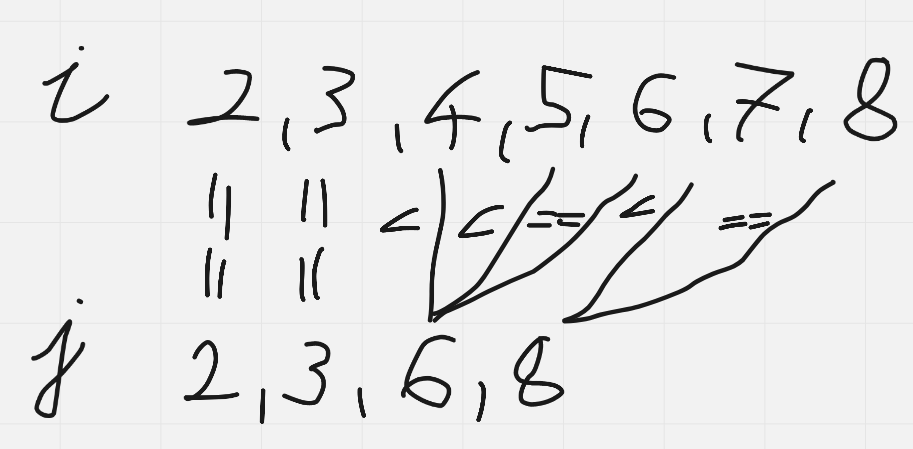 i 2,3,4,5,6,7,8
== == < < == < ==
j 2,3,6,8